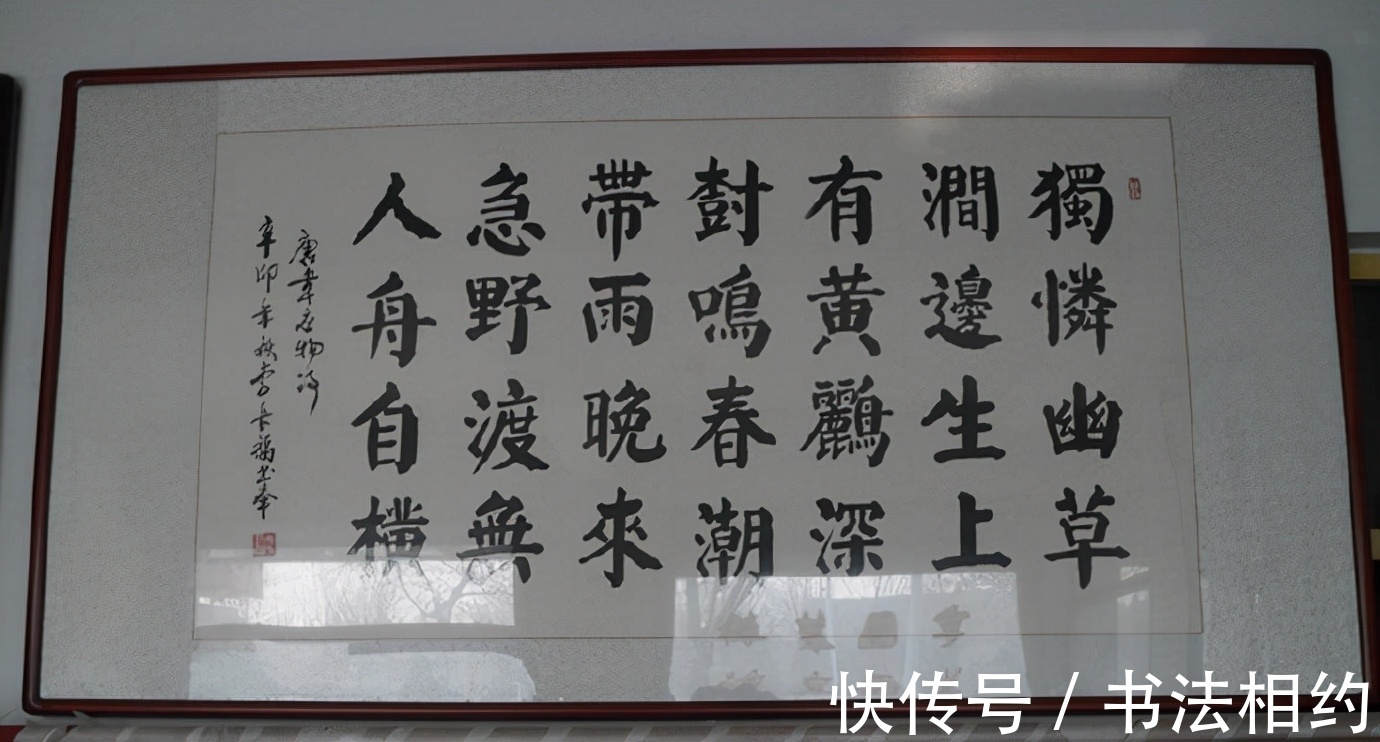 獨憐幽草
澗邊生上
有黃鸝深
樹鳴春潮
帶雨晚來
急野渡無
人舟自橫
唐韋应物诗
辛卯年秋李长福书
快传号 / 书法相约